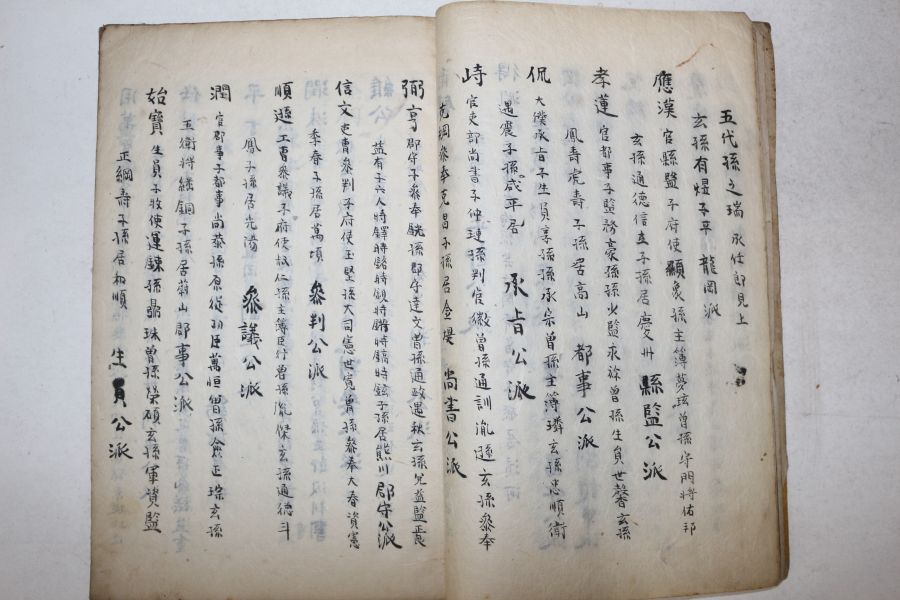 五代孫之瑞 承仕郎見上
玄孫有煜子平 龍岡派
應漢 官縣監子府使顯象孫主簿夢炫曾孫守門將佑邦
玄孫通德信立子孫居慶州 縣監公派
孝蓮 官都事子監務豪孫少監永祿曾孫生員世馨玄孫
鳳壽虎壽子孫居高山 都事公派
侃 大僕承旨子生員享孫承宗曾孫主簿璘玄忠順衛
遇震子孫咸平居 承旨公派
峙 官吏部尙書子仲璉孫判官徽曾孫通訓胤遜玄孫參奉
克綱參奉克昌子孫居金堤 尙書公派
弼亨 郡守子參奉 孫郡守達文曾孫通政遇秋玄孫 監
益有子六人時鐸時 時 時 時鎬時鉉子孫居熊川 郡守公派
信文 吏曹參判子府使玉堅孫大司憲世寬曾孫參奉大春資憲
季春子孫居萬頃 參判公派
順遜 工曹參議子府使叔仁孫主簿臣行曾孫胤傑玄孫通德斗
鳳子孫居光陽 參議公派
潤 官郡事子都事尙恭孫原從功臣萬恒曾孫僉正琮玄孫
五衛將繼銅子孫居蔚山 郡事公派
始寶 生員子牧使運鍊孫鼎珠曾孫榮碩玄孫軍資監
正綱壽子孫居和順 生員公派